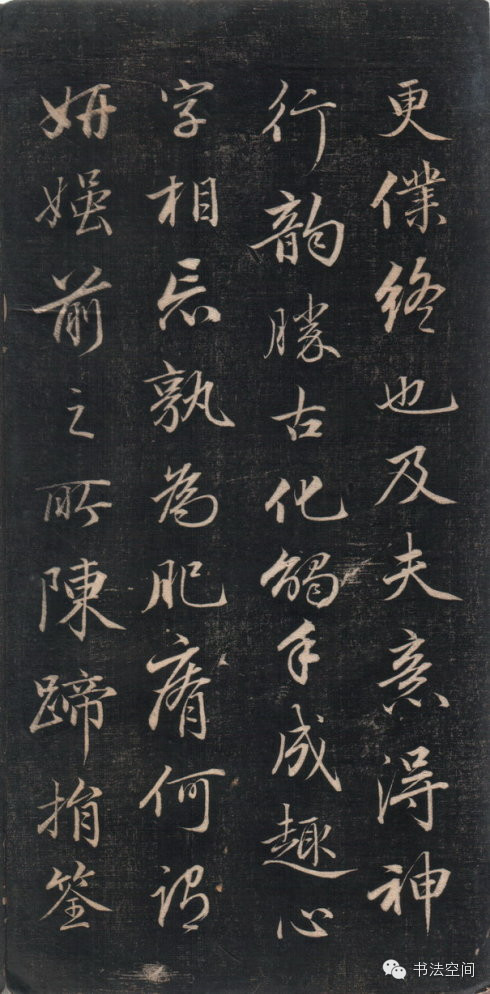 更僕終也及夫意得神
行韵勝古化觸手成趣心
字相忘孰為肥瘠何謂
妍媸前之所陳蹄捐筌
书法空间